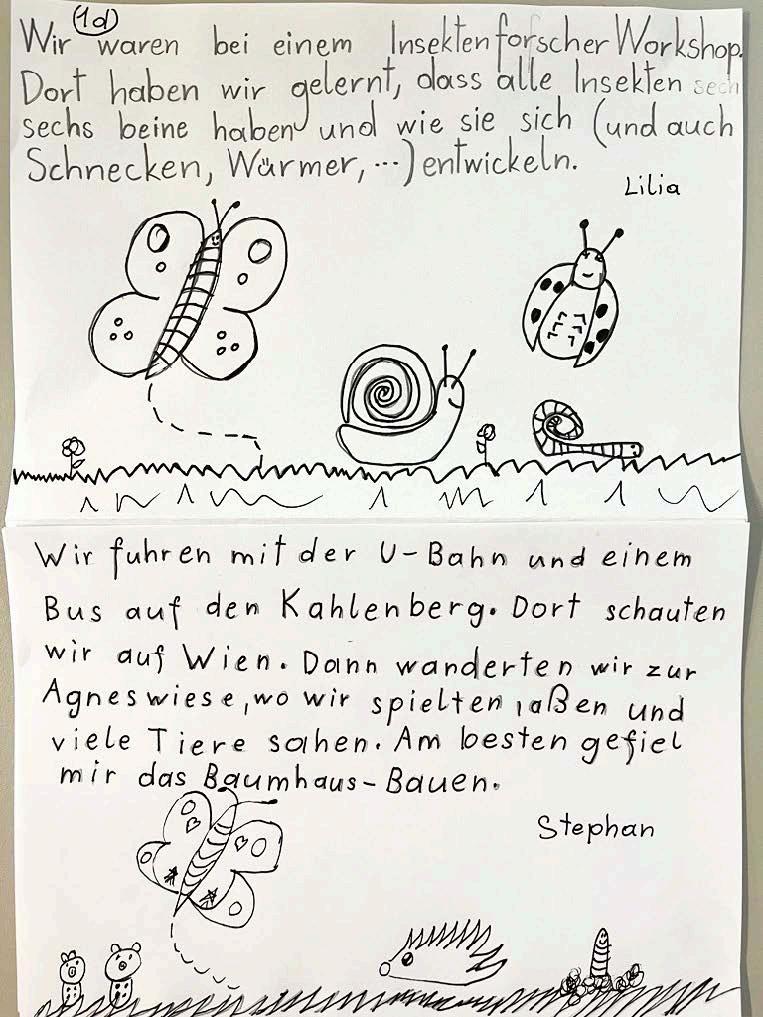 1d
Wir waren bei einem Insektenforscher Workshop.
Dort haben wir gelernt, dass alle Insekten sech
sechs beine haben und wie sie sich (und auch
Schnecken, Würmer, ...) entwickeln.
Lilia
Wir fuhren mit der U-Bahn und einem
Bus auf den Kahlenberg. Dort schauten
wir auf Wien. Dann wanderten wir zur
Agneswiese, wo wir spielten, aßen und
viele Tiere sahen. Am besten gefiel
mir das Baumhaus-Bauen.
Stephan